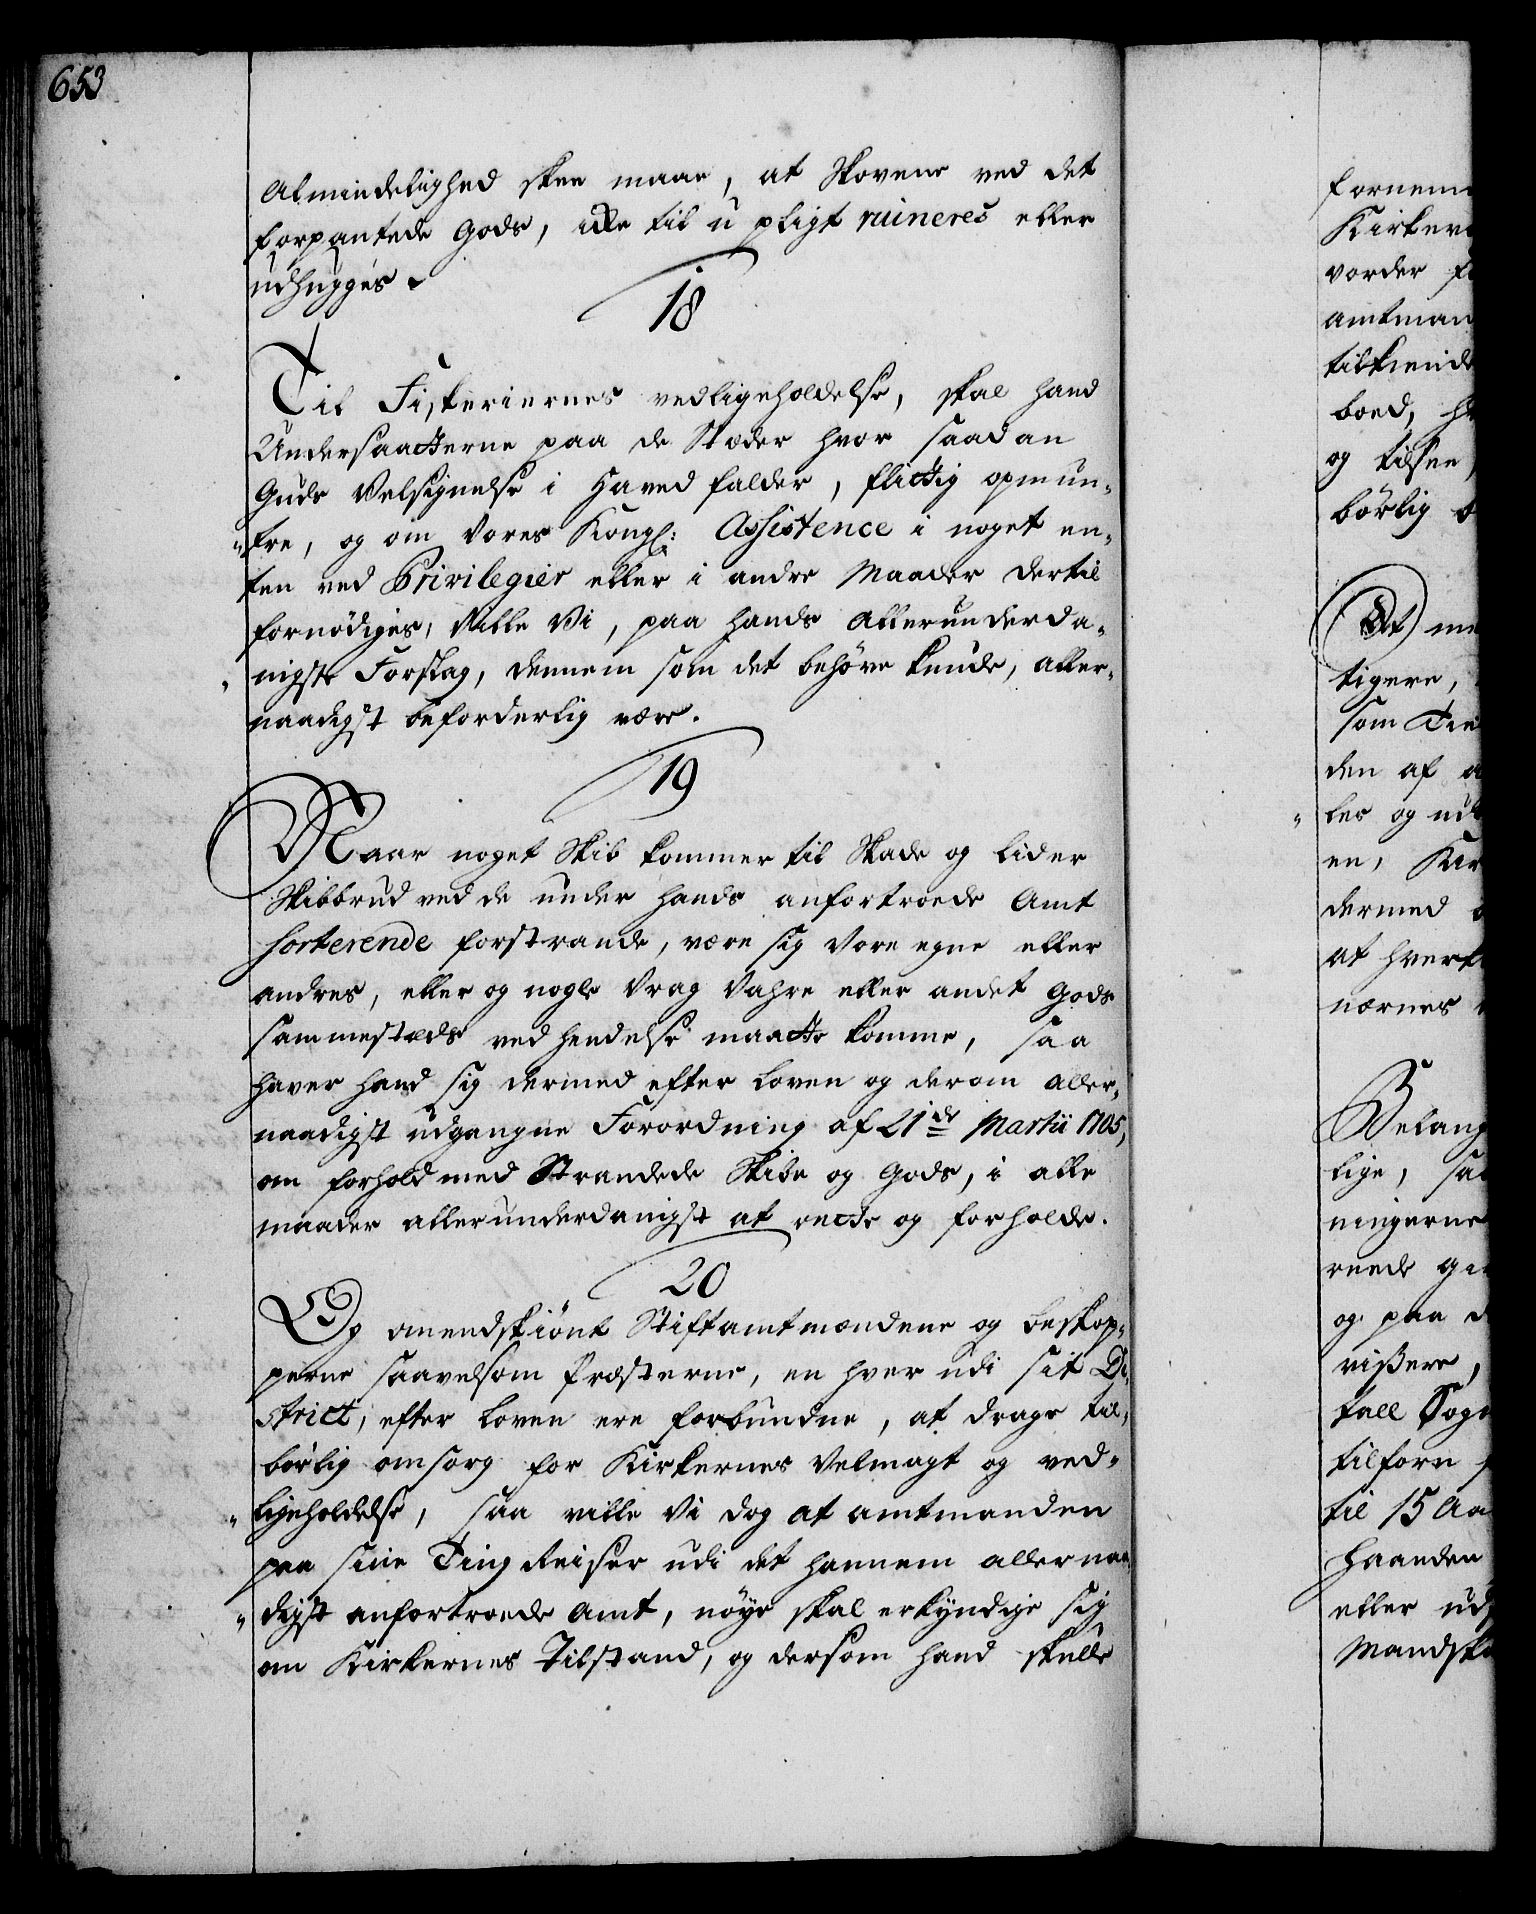 653
Almindelighed skee maae, at Skovene ved det
forpantede Gods, icke til u pligt ruineres eller
udhugges.
18
Til Fiskeriernes vedligeholdelse, skal hand
Undersaatterne paa de Stæder hvor saadan
Guds Velsignelse i Haved falder, flittig opmun-
tre, og om Vores Kongl: Assistence i noget en-
ten ved Privilegier eller i andre Maader dertil
fornødiges, Ville Vi, paa hands Allerunderda-
nigste Forslag, dennem som det behøve kunde, aller-
naadigst beforderlig være.
19
Naar noget Skib kommer til Skade og lider
Skibbrud ved de under hands anfortroede Amt
sorterende forstrande, være sig Vore egne eller
andres, eller og nogle Vrag Vahre eller andet Gods
sammestæds ved hendelse maatte komme, saa
haver hand sig dermed efter Loven og derom Aller-
naadigst udgangne Forordning af 21de Martii 1705,
om forhold med Strandede Skibe og Gods, i alle
maader allerunderdanigst at rette og forholde.
20
Og omendskiønt Stiftamtmændene og beskop-
perne saavelsom Præsterne, en hver udi sit Di-
strict, efter Loven ere forbundne, at drage til-
børlig omsorg for Kirkernes Velmagt og ved-
ligeholdelse, saa ville Vi dog at amtmanden
paa sine Ting Reiser udi det hannem allernaa-
digst anfortroede Amt, nøye skal erkyndige sig
om Kirkernes Tilstand, og dersom hand skulle
fornem
Kirker
vorder
amtman
tilkiende
boed,
og tilsee,
børlig
At
tigere,
som
den af
les og
en,
dermed
at
nærnes
Belang
lige,
ningerne
reede
og paa
vissere,
tall Sogn
tilforn
til 15 Aa
haanden
eller
Mandsk